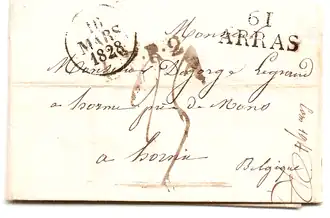 16
MARS
1828
61
ARRAS
Monsieur
L.P.2.R
Monsieur Laforge Legrand
a hornu près de Mons
a hornu
Belgique